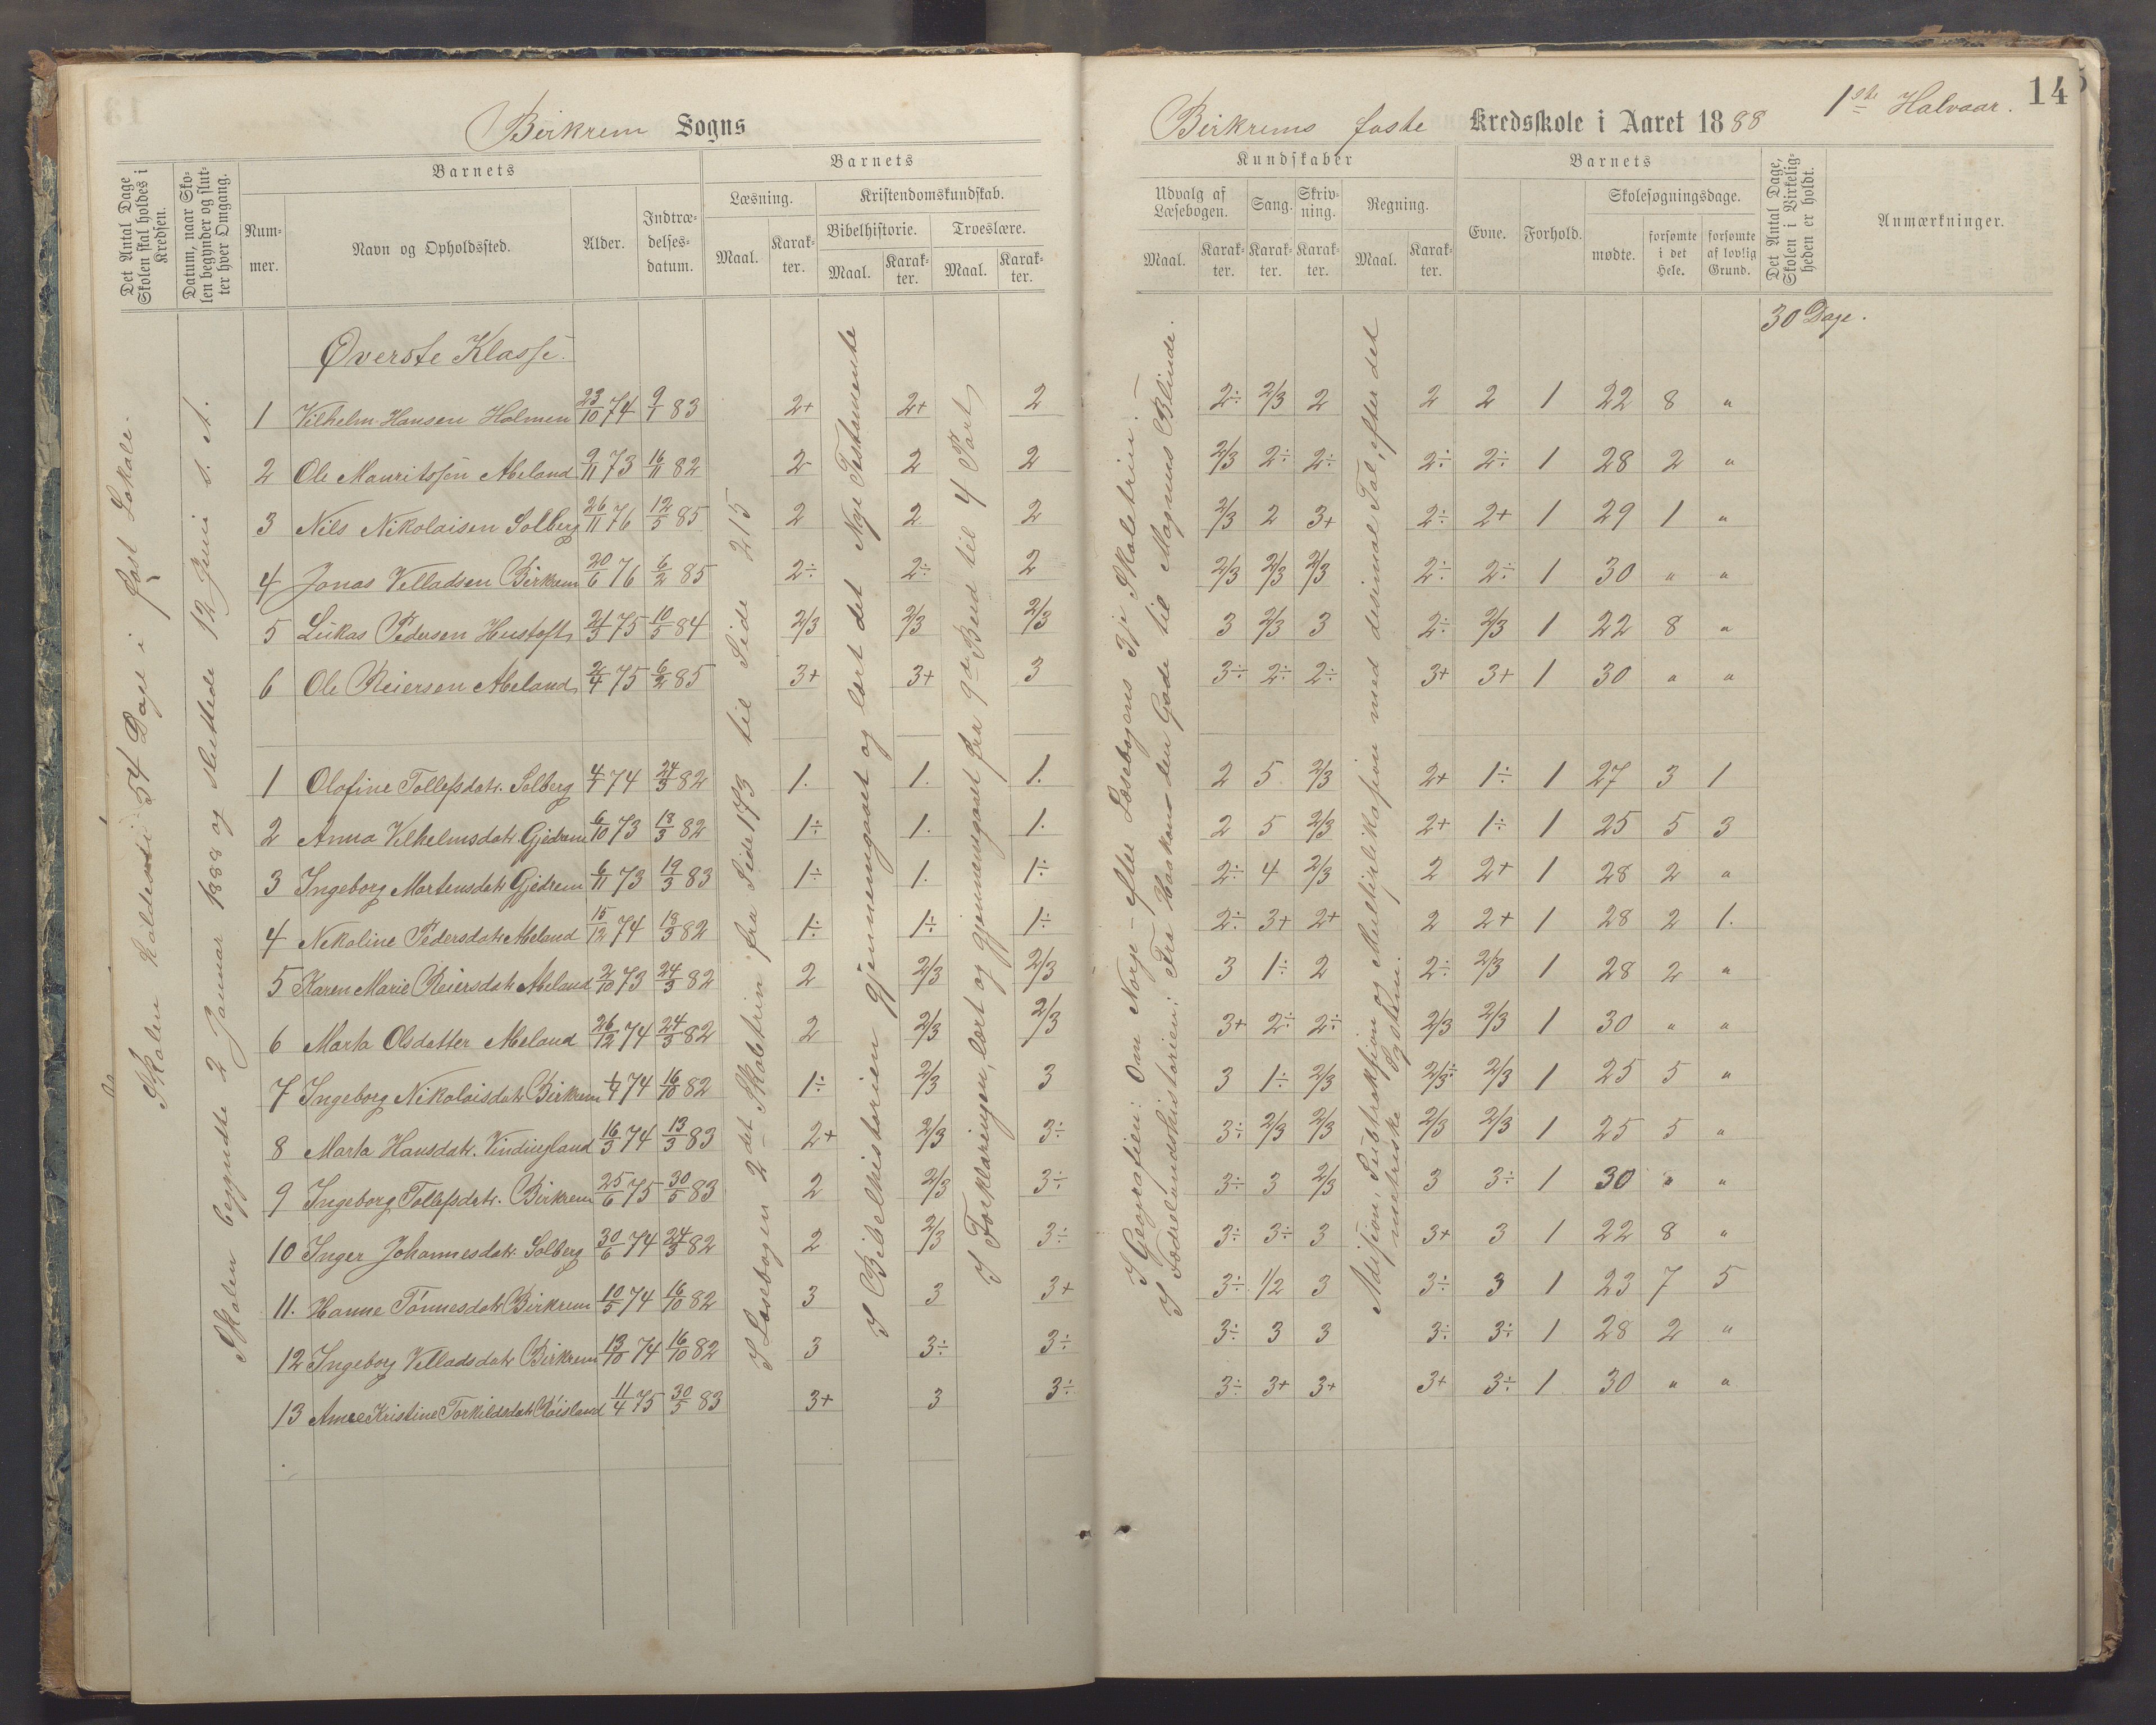 Birkrem Sogns
Birkrems faste Kredsskole i Aaret 1888
1ste Halvaar.
14
Det Antal Dage Skolen skal holdes i Kredsen.
Datum, naar Skolen begynder og slutter hver Omgang.
Barnets
Nummer.
Navn og Opholdssted.
Alder.
Indtrædelsesdatum.
Barnets
Læsning.
Maal.
Karakter.
Kristendomskundskab.
Bibelhistorie.
Maal.
Karakter.
Troeslære.
Maal.
Karakter.
Kundskaber
Udvalg af Læsebogen.
Maal.
Karakter.
Sang.
Karakter.
Skrivning.
Karakter.
Regning.
Maal.
Karakter.
Barnets
Evne.
Forhold.
Skolesøgningsdage.
mødte.
forsømte i det Hele.
forsømte af lovlig Grund.
Det Antal Dage, Skolen i Virkeligheden er holdt.
Anmærkninger.
30 Dage.
Skolen holdes i 54 Dage i fast Lokale.
Skolen begyndte 2 Januar 1888 og sluttede 12 Juni s. A.
I Læsebogen 2det Skoletrin fra Side 173 til Side 215
I Bibelhistorien gjennemgaaet og lært det Nye Testamente
I Forklaringen, lært og gjennemgaaet fra 9de Bud til 4 Part
I Geografien: Om Norge - efter Læsebogens 3je Skoletrin.
I Fædrelandshistorien: Fra Haakon den Gode til Magnus Blinde.
Adisjon, Subtraksjon og Multiplikasjon med desimal Tal, efter det metriske System.
Øverste Klasse.
1 Vilhelm Hansen Holmen 23/10 74 9/1 83 2+ 2+ 2 2÷ 2/3 2 2 2 1 22 8 "
2 Ole Mauritssen Abeland 9/11 73 16/11 82 2 2 2 2/3 2÷ 2÷ 2÷ 2÷ 1 28 2 "
3 Nils Nikolaisen Solberg 26/11 76 12/5 85 2 2 2 2/3 2 3+ 2÷ 2+ 1 29 1 "
4 Jonas Velladsen Birkrem 20/6 76 6/2 85 2÷ 2÷ 2 2/3 2/3 2/3 2÷ 2÷ 1 30 " "
5 Lukas Pedersen Hustoft 21/3 75 10/5 84 2/3 2/3 2/3 3 2/3 3 2÷ 2/3 1 22 8 "
6 Ole Reiersen Abeland 2/4 75 6/2 85 3+ 3+ 3 3÷ 2÷ 2÷ 3+ 3+ 1 30 " "
1 Olofine Tollefsdatr. Solberg 4/1 74 24/3 82 1. 1. 1. 2 5 2/3 2+ 1÷ 1 27 3 1
2 Anna Vilhelmsdatr Gjedrem 6/10 73 13/3 82 1÷ 1. 1. 2 5 2/3 2+ 1÷ 1 25 5 3
3 Ingeborg Martensdatr Gjedrem 6/11 73 19/3 83 1÷ 1. 1÷ 2÷ 4 2/3 2 2+ 1 28 2 "
4 Nikoline Pedersdatr Abeland 15/12 74 13/3 82 1÷ 1÷ 1÷ 2÷ 3+ 2+ 2 2+ 1 28 2 1.
5 Karen Marie Reiersdatr Abeland 2/10 73 24/3 82 2 2/3 2/3 3 1÷ 2 2÷ 2/3 1 28 2 "
6 Marta Olsdatter Abeland 26/12 74 24/3 82 2 2/3 2/3 3+ 2÷ 2÷ 2/3 2/3 1 30 " "
7 Ingeborg Nikolaisdatr Birkrem 1/7 74 16/10 82 1÷ 2/3 3 3 1÷ 2/3 2/3÷ 2/3 1 25 5 "
8 Marta Hansdatr. Vindingland 16/3 74 13/3 83 2+ 2/3 3÷ 3÷ 2/3 2/3 2/3 2/3 1 25 5 "
9 Ingeborg Tollefsdatr. Birkrem 25/6 75 30/5 83 2 2/3 3÷ 3÷ 3 2/3 3 3÷ 1 30 " "
10 Inger Johannesdatr Solberg 30/6 74 24/3 82 2 2/3 3÷ 3÷ 3÷ 3 3+ 3 1 22 8 "
11. Hanne Tönnesdatr Birkrem 10/5 74 16/10 82 3 3 3+ 3÷ 1/2 3 3÷ 3 1 23 7 5
12 Ingeborg Velladsdatr Birkrem 13/10 74 16/10 82 3 3÷ 3÷ 3÷ 3 3 3÷ 3÷ 1 28 2 "
13 Ane Kristine Torkildsdatr Röisland 11/4 75 30/5 83 3+ 3 3÷ 3÷ 3+ 3+ 3+ 3÷ 1 30 " "